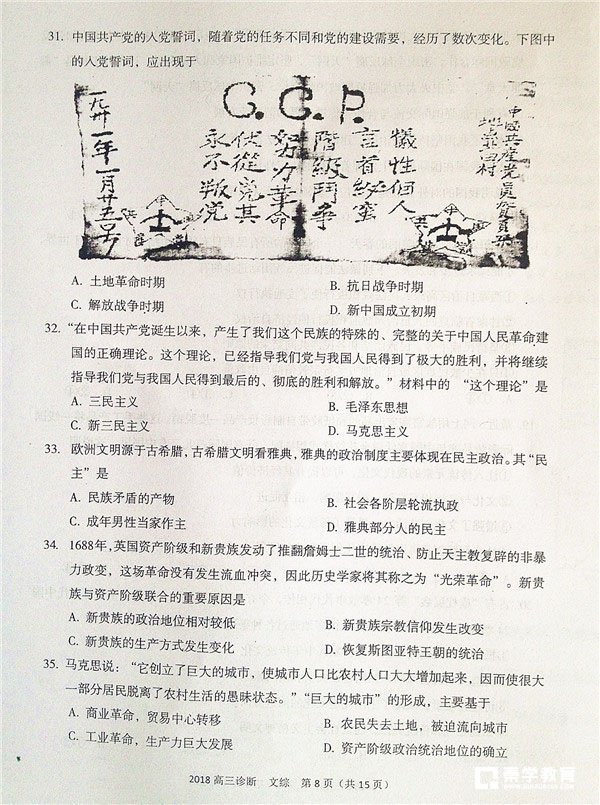 31. 中国共产党的入党誓词，随着党的任务不同和党的建设需要，经历了数次变化。下图中
的入党誓词，应出现于
C.C.P.
中國共產党員
犧牲個人
言首
階級鬥争
努力革命
伏從党其
永不叛党
一九卅一年一月廿五号
A. 土地革命时期
B. 抗日战争时期
C. 解放战争时期
D. 新中国成立初期
32. “在中国共产党诞生以来，产生了我们这个民族的特殊的、完整的关于中国人民革命建
国的正确理论。这个理论，已经指导我们党与我国人民得到了极大的胜利，并将继续
指导我们党与我国人民得到最后的、彻底的胜利和解放。”材料中的 “这个理论”是
A. 三民主义
B. 毛泽东思想
C. 新三民主义
D. 马克思主义
33. 欧洲文明源于古希腊，古希腊文明看雅典，雅典的政治制度主要体现在民主政治。其“民
主”是
A. 民族矛盾的产物
B. 社会各阶层轮流执政
C. 成年男性当家作主
D. 雅典部分人的民主
34. 1688年，英国资产阶级和新贵族发动了推翻詹姆士二世的统治、防止天主教复辟的非暴
力政变，这场革命没有发生流血冲突，因此历史学家将其称之为“光荣革命”。新贵
族与资产阶级联合的重要原因是
A. 新贵族的政治地位相对较低
B. 新贵族宗教信仰发生改变
C. 新贵族的生产方式发生变化
D. 恢复斯图亚特王朝的统治
35. 马克思说：“它创立了巨大的城市，使城市人口比农村人口大大增加起来，因而使很大
一部分居民脱离了农村生活的愚昧状态。”“巨大的城市”的形成，主要基于
A. 商业革命，贸易中心转移
B. 农民失去土地，被迫流向城市
C. 工业革命，生产力巨大发展
D. 资产阶级政治统治地位的确立
2018 高三诊断 文综 第 8 页（共 15 页）
秦学教育